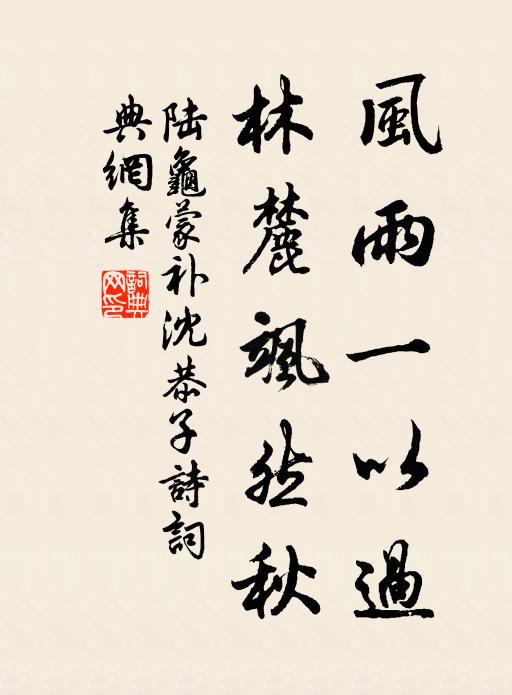 風雨一以過
林麓颯然秋
陆龜蒙补沈恭子詩詞
典網集
詞典网印